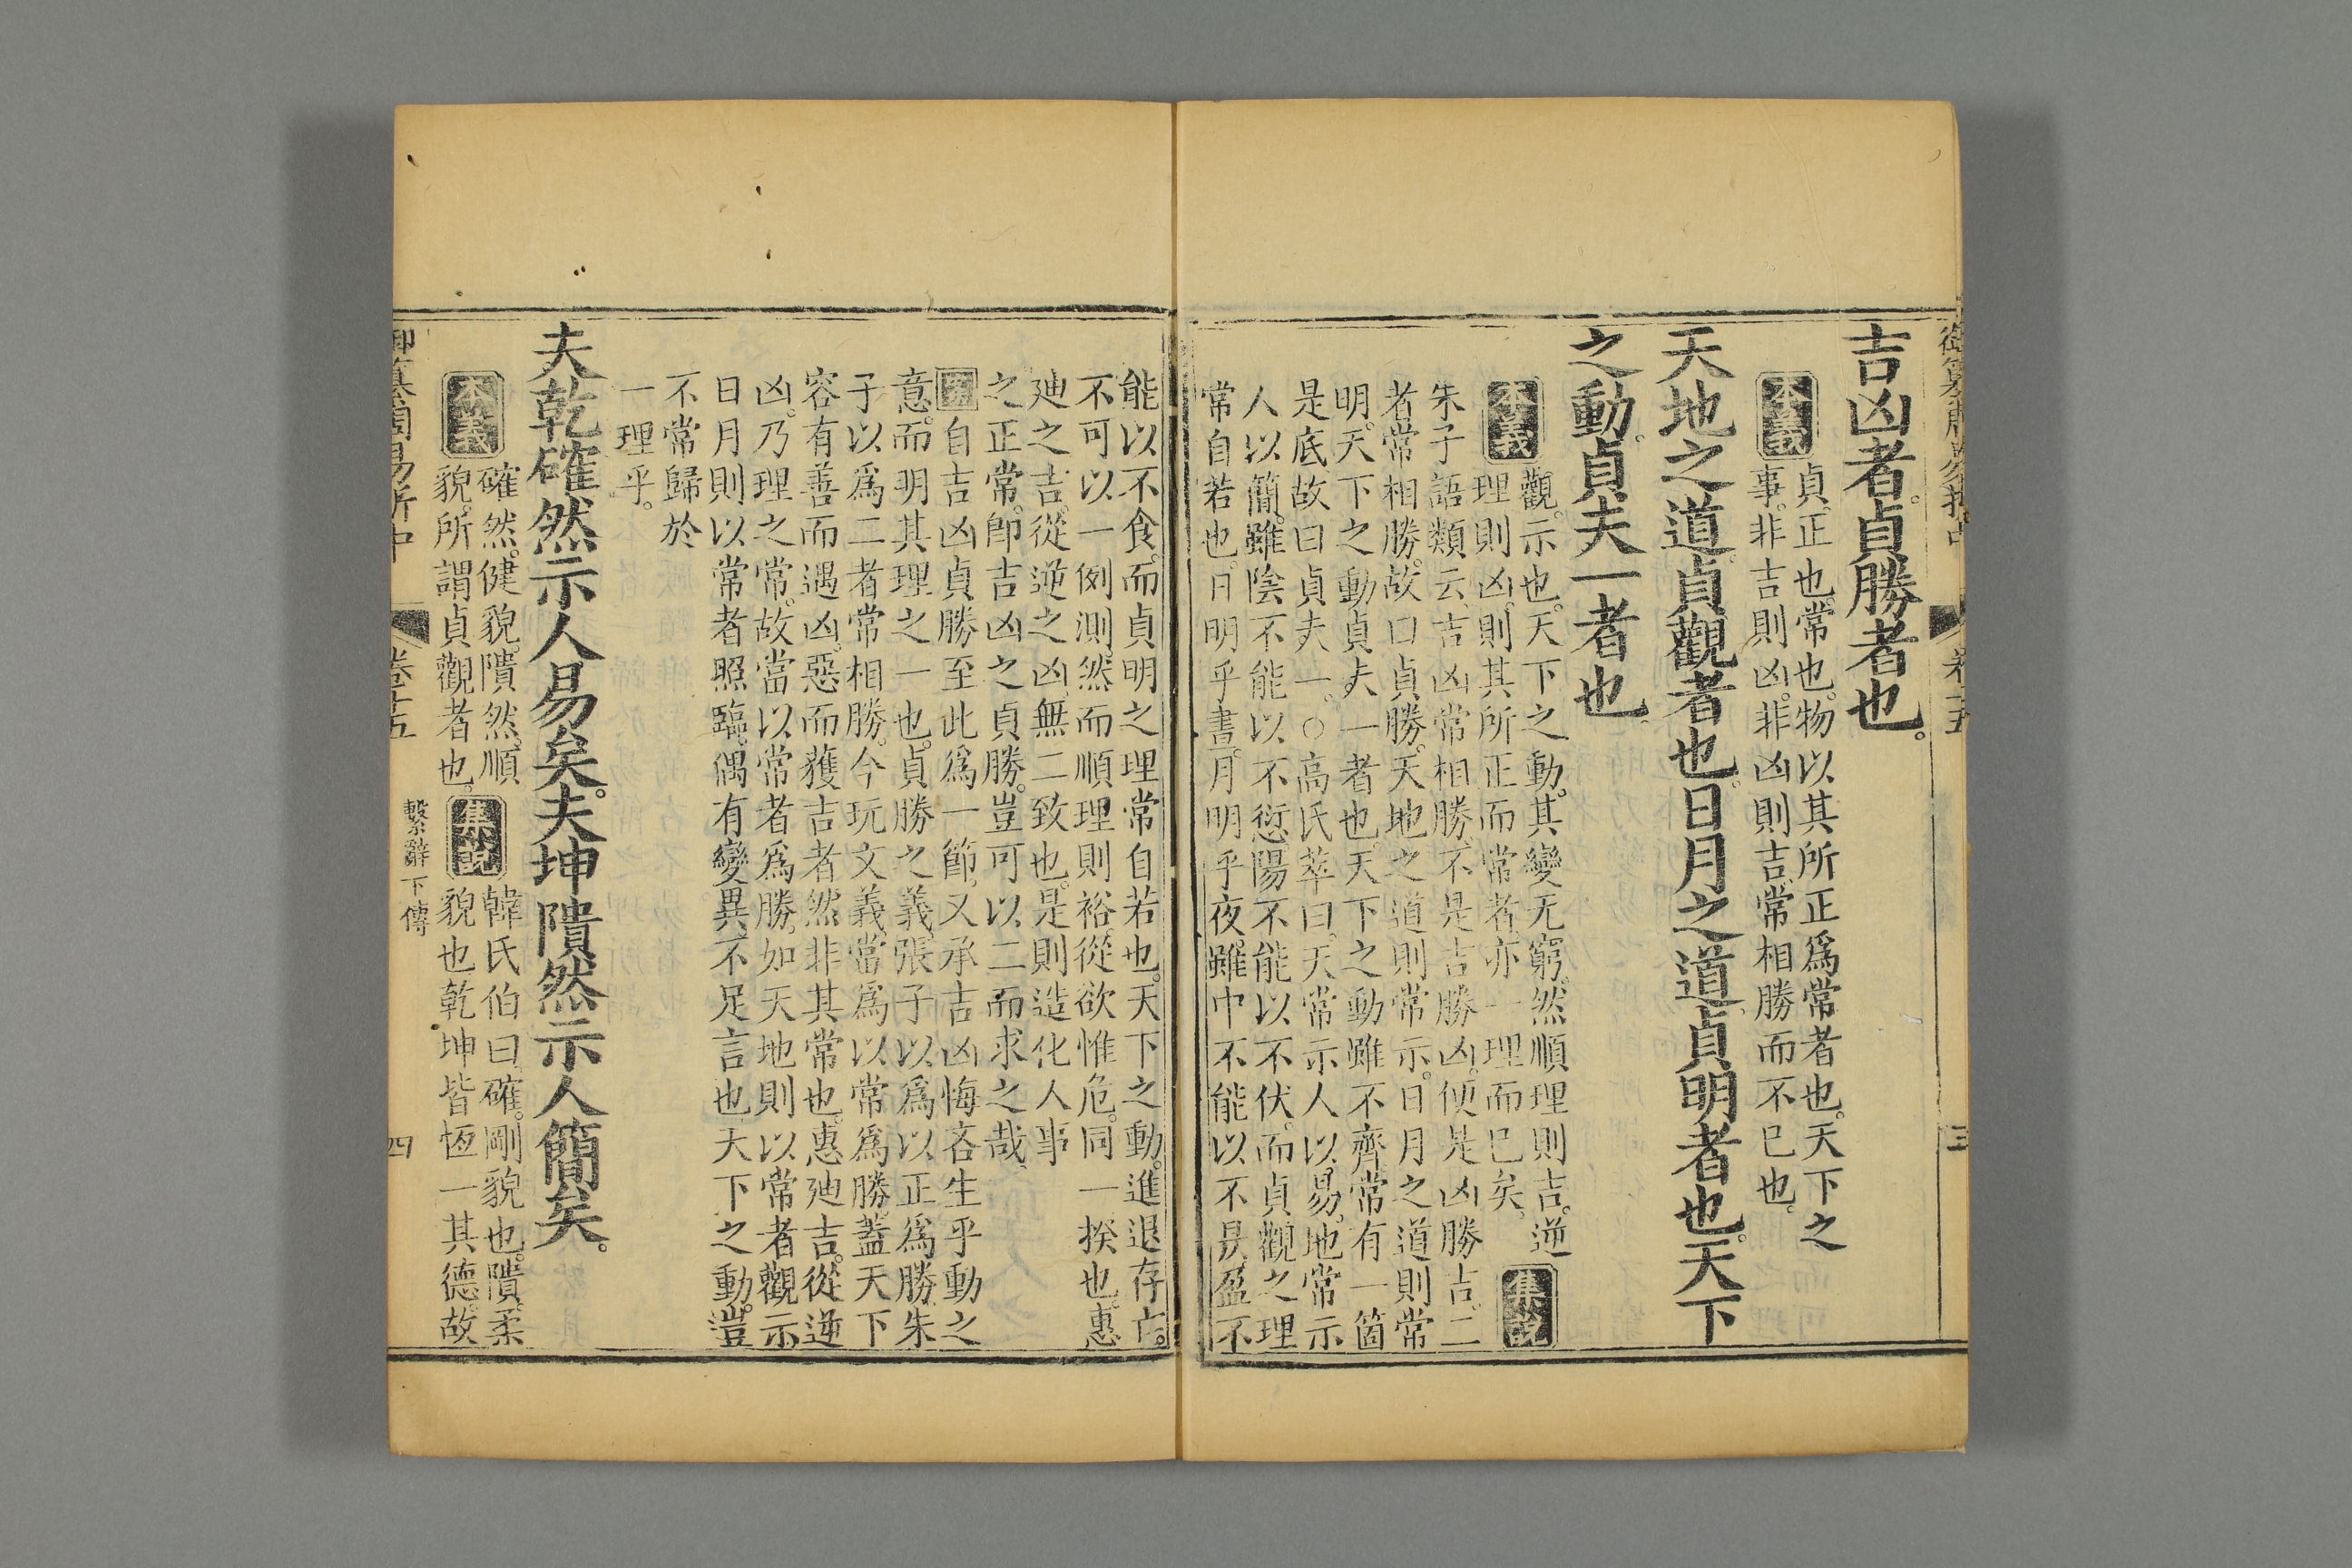 吉凶者。貞勝者也。
本義
貞正也。常也。物以其所正爲常者也。天下之
事。非吉則凶。非凶則吉。常相勝而不已也。
天地之道。貞觀者也。日月之道。貞明者也。天下
之動。貞夫一者也。
本義
觀。示也。天下之動。其變无窮。然順理則吉。逆
理則凶。則其所正而常者。亦一理而已矣。
集說
朱子語類云。吉凶常相勝。不是吉勝凶。便是凶勝吉。二
者常相勝。故曰貞勝。天地之道則常示。日月之道則常
明。天下之動貞夫一者也。天下之動雖不齊。常有一箇
是底。故曰貞夫一。○高氏萃曰。天常示人以易。地常示
人以簡。雖陰不能以不愆。陽不能以不伏。而貞觀之理
常自若也。日明乎晝。月明乎夜。雖中不能以不昃。盈不
能以不食。而貞明之理常自若也。天下之動。進退存亡。
不可以一例測。然而順理則裕。從欲惟危。同一揆也。惠
廸之吉。從逆之凶。無二致也。是則造化人事
之正常。卽吉凶之貞勝。豈可以二而求之哉。
案
自吉凶貞勝至此爲一節。又承吉凶悔吝生乎動之
意。而明其理之一也。貞勝之義。張子以爲以正爲勝。朱
子以爲二者常相勝。今玩文義。當爲以常爲勝。蓋天下
容有善而遇凶。惡而獲吉者。然非其常也。惠廸吉。從逆
凶。乃理之常。故當以常者爲勝。如天地則以常者觀示。
日月則以常者照臨。偶有變異。不足言也。天下之動。豈
不常歸於
一理乎。
夫乾確然示人易矣。夫坤隤然示人簡矣。
本義
確然。健貌。隤然。順
貌。所謂貞觀者也。
集說
韓氏伯曰。確。剛貌也。隤。柔
貌也。乾坤皆恆一其德。故
御纂周易折中
卷十五
繫辭下傳
四